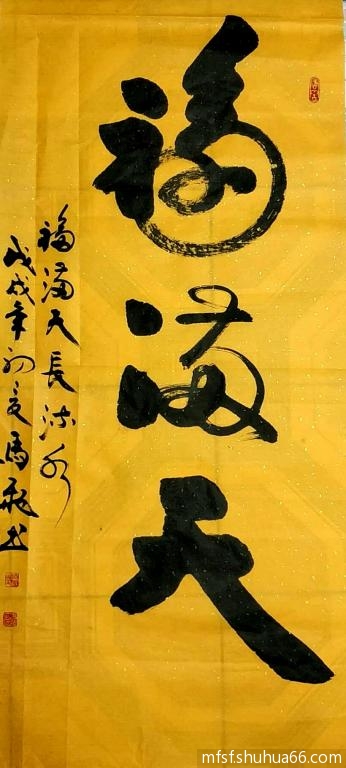 福满天
福满天長流水
戊戌年初夏馬飛书
mfsf.shuhua66.com